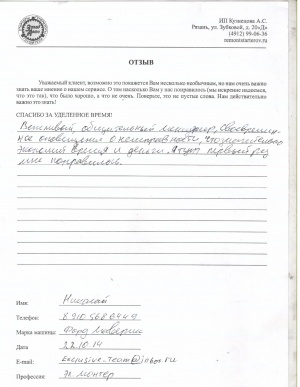 ИП Кузнецов А.С.
Рязань, ул. Зубковой, д. 20«Д»
(4912) 99-06-36
remontstarterov.ru
ОТЗЫВ
Уважаемый клиент, возможно это покажется Вам несколько необычным, но нам очень важно
знать ваше мнение о нашем сервисе. О том насколько Вам у нас понравилось (мы искренне надеемся,
что это так), что было хорошо, а что не очень. Поверьте, это не пустые слова. Нам действительно
важно это знать!
СПАСИБО ЗА УДЕЛЕННОЕ ВРЕМЯ!
Вежливый общительный менеджер, своевремен-
ное оповещение о неисправности, что значительно
экономит время и деньги. Я тут первый раз
мне понравилось.
Имя: Николай
Телефон:
Марка машины: Форд Маверик
Дата 22.10.14
E-mail: exclusive.team@inbox.ru
Профессия: Эл. монтер